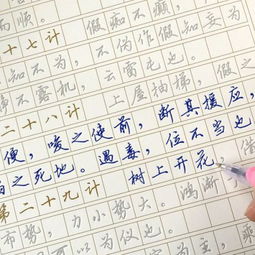 而顺。
十七计 假痴不癫，
知不为，不伪作假知妄为
静不露机，云雷屯也。
二十八计 上屋抽梯，假之
便，唆之使前，断其援应，
之死地。遇毒，位不当也。
第二十九计 树上开花
布势，力小势大。鸿渐
可以为仪也。